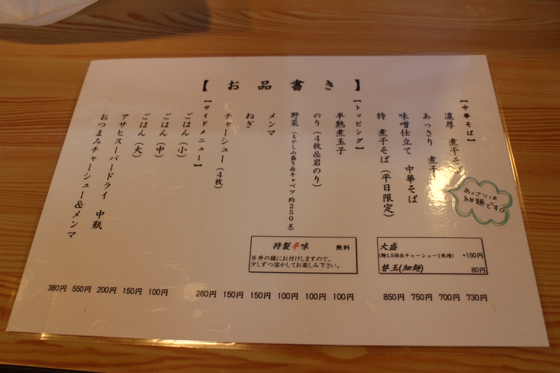 【お品書き】
【中華そば】
濃厚 煮干そば 730円
あっさり 煮干 700円
味噌仕立て 中華そば 750円
特 煮干そば(平日限定) 850円
あっさりは細麺です。
大盛
+150円
替玉(細麺) 80円
【トッピング】
半熟煮玉子 100円
のり(4枚&岩のり) 100円
野菜(もやし山盛り&キャベツ約250g) 100円
メンマ 150円
ねぎ 150円
チャーシュー(4枚) 280円
特製辛味 無料
丼の縁にお付けしますので、
少しずつ溶かしてお楽しみ下さい。
【サイドメニュー】
ごはん(小) 100円
ごはん(中) 150円
ごはん(大) 200円
アサヒスーパードライ 中瓶 550円
おつまみチャーシュー&メンマ 380円